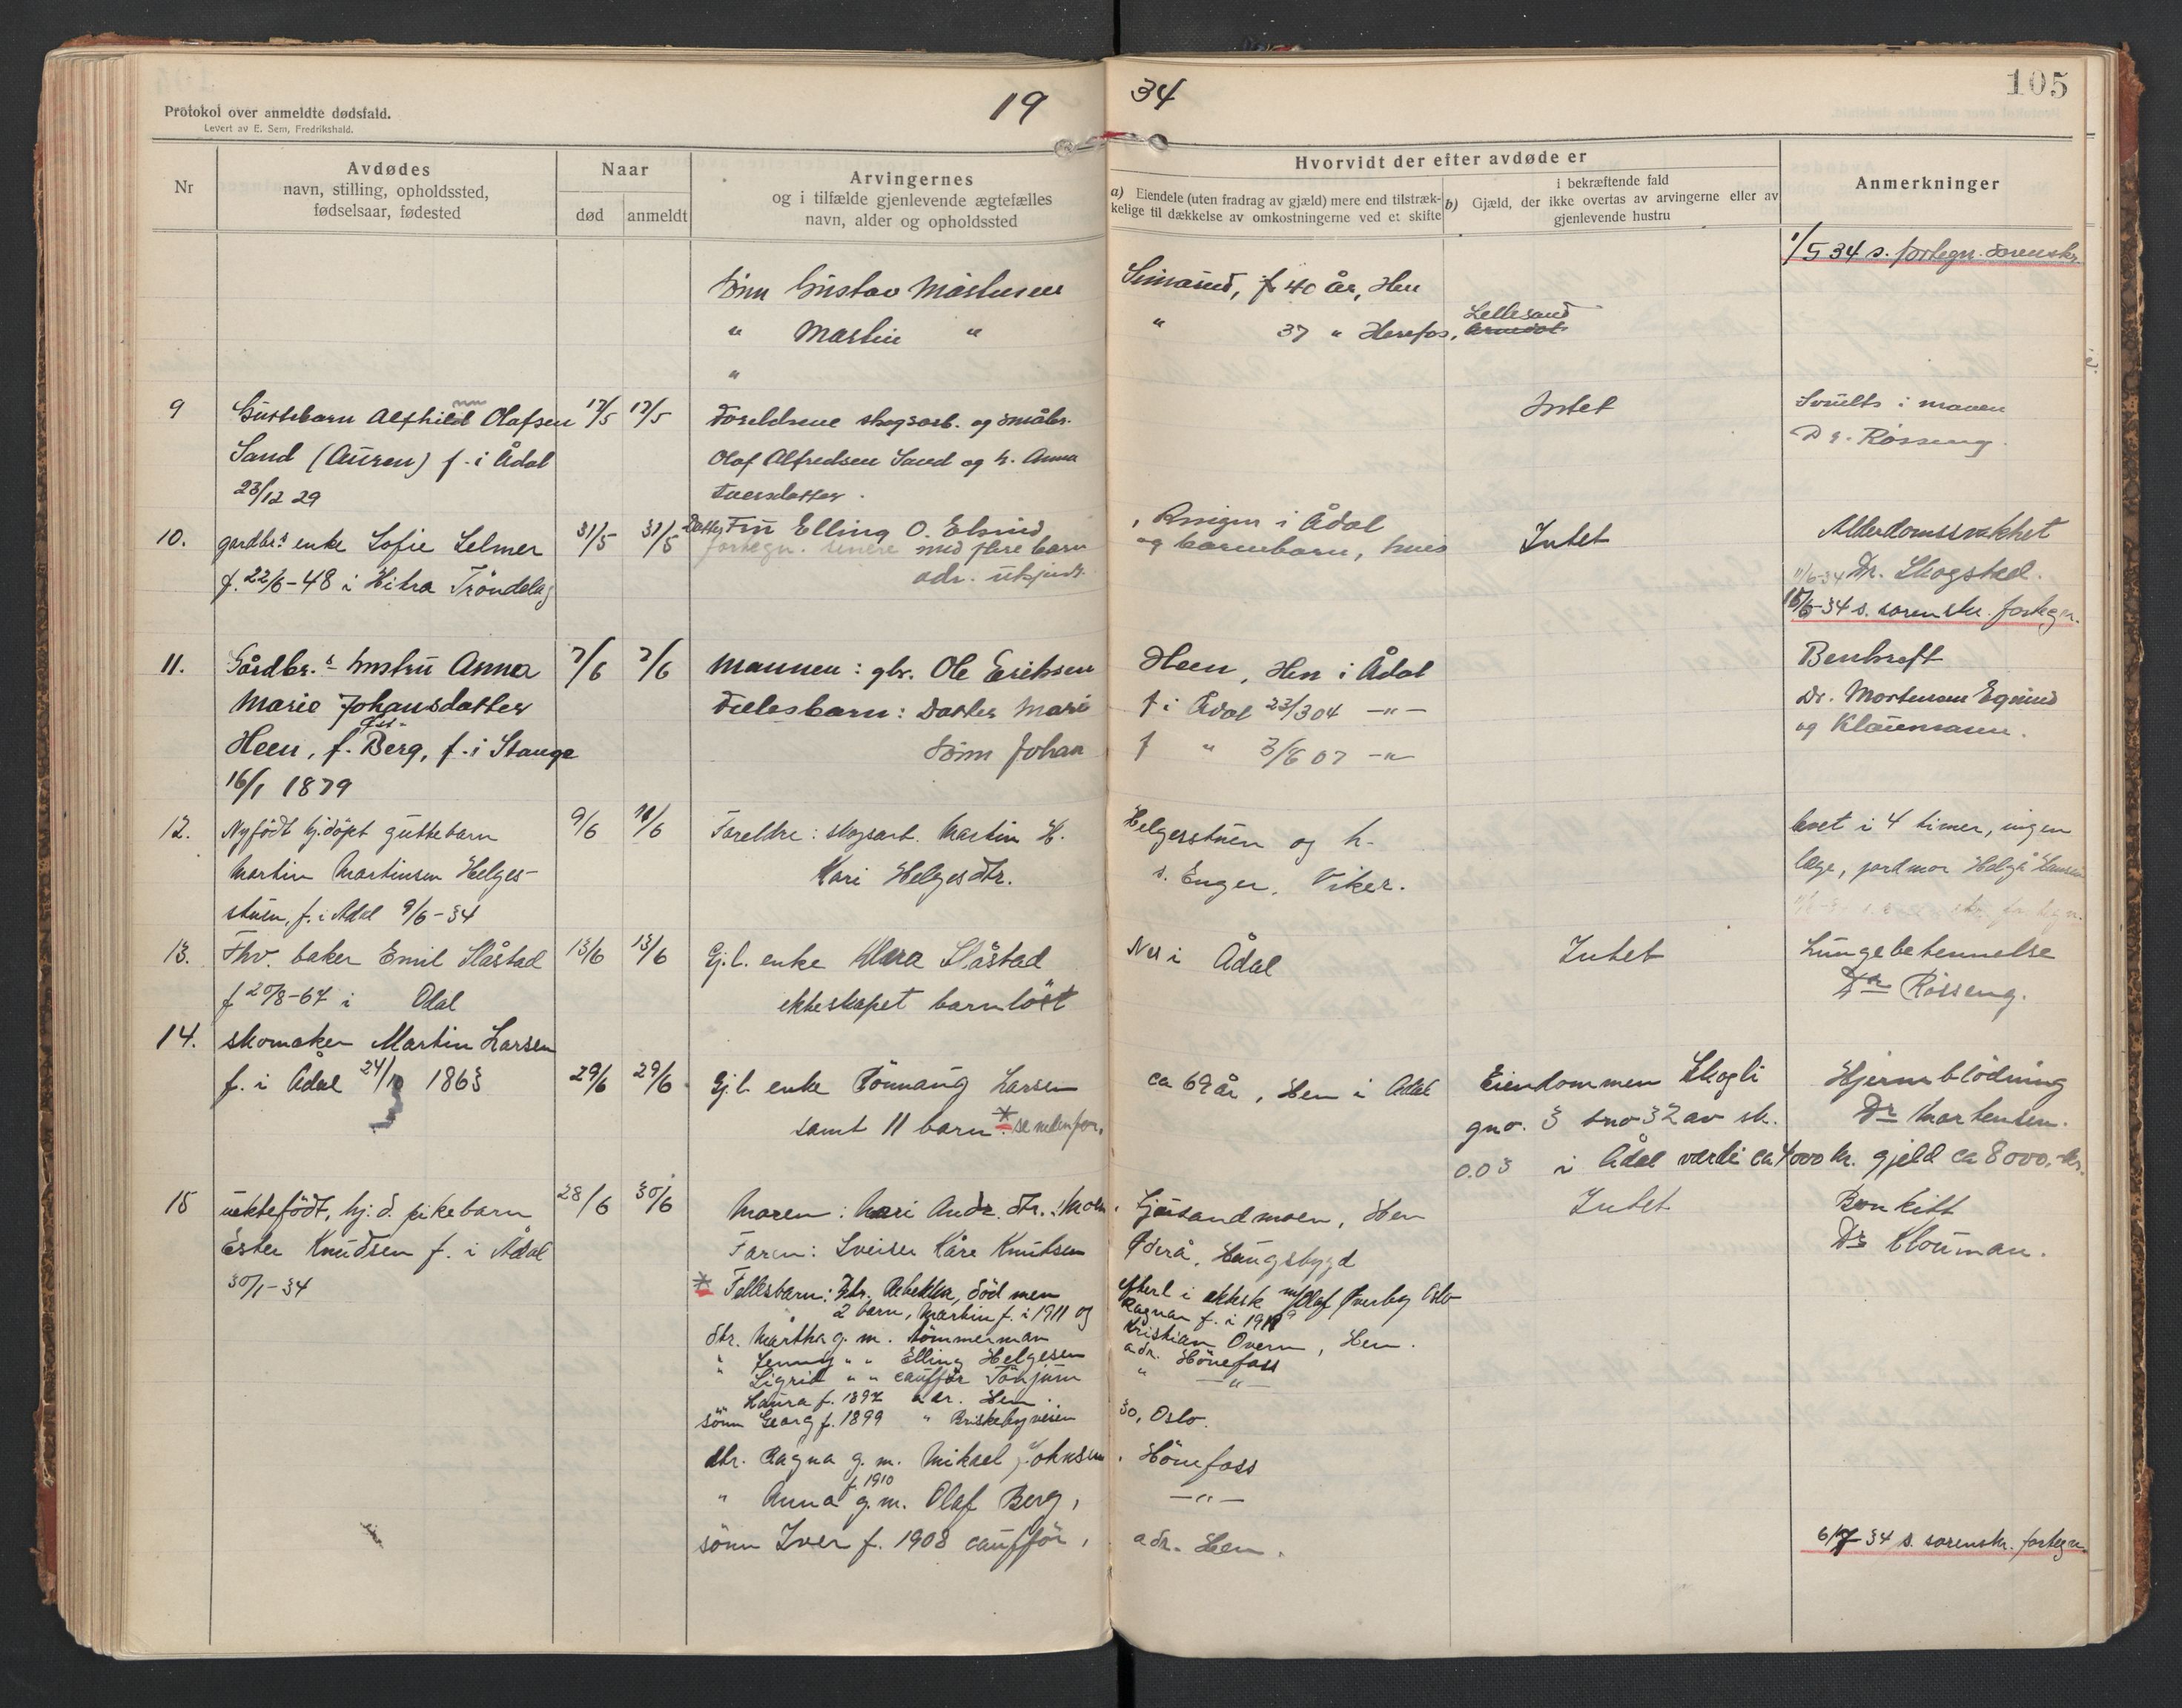 Protokol over anmeldte dødsfald.
Levert av E. Sem, Fredrikshald.
19 34
105
Nr
Avdødes
navn, stilling, opholdssted,
fødselsaar, fødested
Naar
død anmeldt
Arvingernes
og i tilfælde gjenlevende ægtefælles
navn, alder og opholdssted
Hvorvidt der efter avdøde er
a) Eiendele (uten fradrag av gjæld) mere end tilstræk-
kelige til dækkelse av omkostningerne ved et skifte
i bekræftende fald
b) Gjæld, der ikke overtas av arvingerne eller av
gjenlevende hustru
Anmerkninger
1/5 34 s. fortegn. sorenskr.
Sönn Gustav Mathisen Simarud, 40 år, Hen
" Martin " " 37 " Herefos, Lillesand
"
9 Guttebarn Alfhild Olafsen 17/5 17/5 Foreldrene skogsarb. og småbr. Intet Svulst i maven
Sand (Auren) f. i Ådal Olaf Alfredsen Sand og h. Anna Dr. Rosseng.
23/12 29 Iversdatter.
10. gardbr.s enke Sofie Selmer 31/5 31/5 Datter Fru Elling O. Elsrud, Ringen i Ådal Intet Alderdomssvakhet
fortegn. senere med flere barn og barnebarn, hvis
f. 22/6-48 i Hitra Tröndelag adr. ukjent. 11/6-34 Dr. Skogstad.
15/6-34 s. sorenskr. fortegn.
11. Gårdbr.s hustru Anna 7/6 7/6 Mannen: gbr. Ole Eriksen Heen, Hen i Ådal Benkreft
Marie Johansdatter Fellesbarn: Datter Marie f i Ådal 23/3 04 -"- Dr. Mortensen Egnund
Heen, f. Berg, f. i Stange Sönn Johan f " 3/8 07 -"- og Kloumann.
16/1 1879
12. Nyfödt hj.döpt guttebarn 9/6 10/6 Foreldre: skogsarb. Martin H. Helgerstuen og h. levet i 4 timer, ingen
Martin Martinsen Helges- Kari Helgesdtr. s. Enger, Viker. læge, jordmor Helga Hansen
stuen, f. i Ådal 9/6-34
13. Fhv. baker Emil Slåstad 13/6 13/6 Gj.l. enke Klara Slåstad Nes i Ådal Intet Lungebetennelse
f 20/8-67 i Odal ekteskapet barnlöst Dr Rosseng.
14. skomaker Martin Larsen
f. i Ådal 24/10 1863 29/6 29/6 Gj.l. enke Rönnaug Larsen ca 69 år, Hen i Ådal Eiendommen Skogli Hjerneblödning
samt 11 barn * se nedenfor. gno. 3 bno 32 av sk. Dr Mortensen.
0.03 i Ådal verdi ca 4000 kr. gjeld ca 8000,- kr.
15 uektefödt, hj.d. pikebarn 28/6 30/6 Moren: Mari Andr. dtr. Moen, Gjersandmoen, Hen Intet Bronkitt
Ester Knudsen f. i Ådal Faren: Sveiser Kåre Knutsen Åderå, Haugsbygd Dr Klouman.
30/1-34 * Fellesbarn: Dtr. Rebekka, död men efterl i ektesk m/Olaf Överby Oslo
2 barn, Martin f. i 1911 og Ragnar f. i 1919
dtr. Martha g. m. tömmerman Kristian Overn, Hen.
" Jenny " " Elling Helgesen adr. Hönefoss
" Sigrid " " caufför Tönjum " -"-
" Laura f. 1897 adr. Hen.
sönn Georg f. 1899 " Briskebyveien 30, Oslo.
dtr. Ragna g. m. Mikael Johnsen, Hönefoss
" Anna f. 1910 g.m. Olaf Berg, -"-
sönn Iver f. 1908 cauffør, adr. Hen.
6/7-34 s. sorenskr. fortegn.